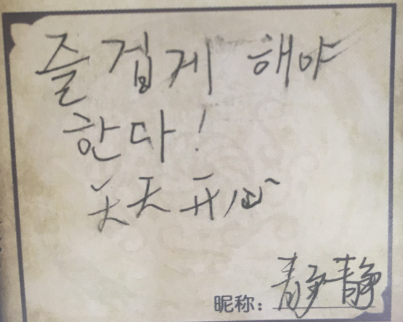 즐겁게 해야
한다!
天天开心
昵称：静静